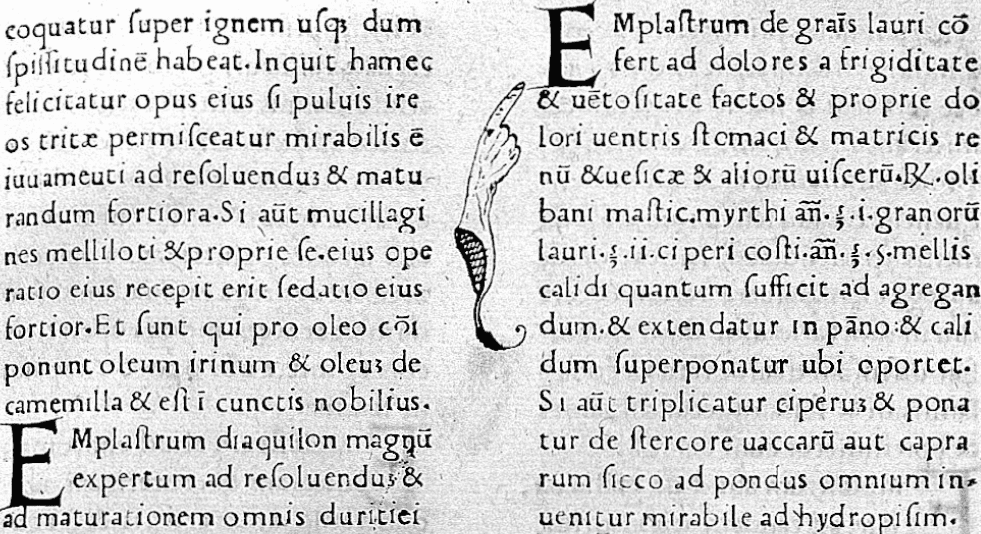 coquatur ſuper ignem uſqꝫ dum
ſpiſſitudinē habeat.Inquit hamec
felicitatur opus eius ſi puluis ire
os tritæ permiſceatur mirabilis ē
iuuameuti ad reſoluenduꝫ & matu
randum fortiora.Si aūt mucillagi
nes melliloti &proprie ſe.eius ope
ratio eius recepit erit ſedatio eius
fortior.Et ſunt qui pro oleo cōi
ponunt oleum irinum & oleuꝫ de
camemilla & eſt ī cunctis nobilius.
EMplaſtrum diaquilon magnū
expertum ad reſoluenduꝫ &
ad maturationem omnis duritiei
EMplaſtrum de graīs lauri cō
fert ad dolores a frigiditate
& uētoſitate factos & proprie do
lori uentris ſtomaci & matricis re
nū &ueſicæ & aliorū uiſcerū.℞.oli
bani maſtic.myrthi añ.℥.i.granorū
lauri.℥.ii.ciperi coſti.añ.℥.ſ.mellis
calidi quantum ſufficit ad agregan
dum.& extendatur in pāno:& cali
dum ſuperponatur ubi oportet.
Si aūt triplicatur ciperuꝫ & pona
tur de ſtercore uaccarū aut capra
rum ſicco ad pondus omnium in-
uenitur mirabile ad hydropiſim.